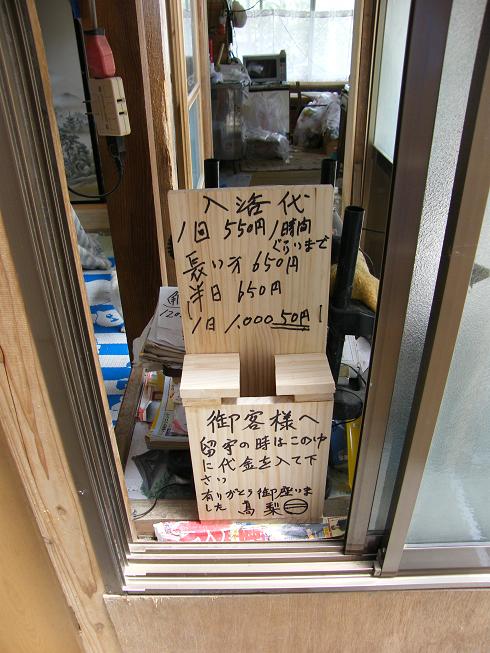 入浴代
1回 550円 1時間
ぐらいまで
長い方 650円
半日 650円
1日 1,000 50円
御客様へ
留守の時はこの中
に代金を入て下
さい
有りがとう御座いま
した 高梨